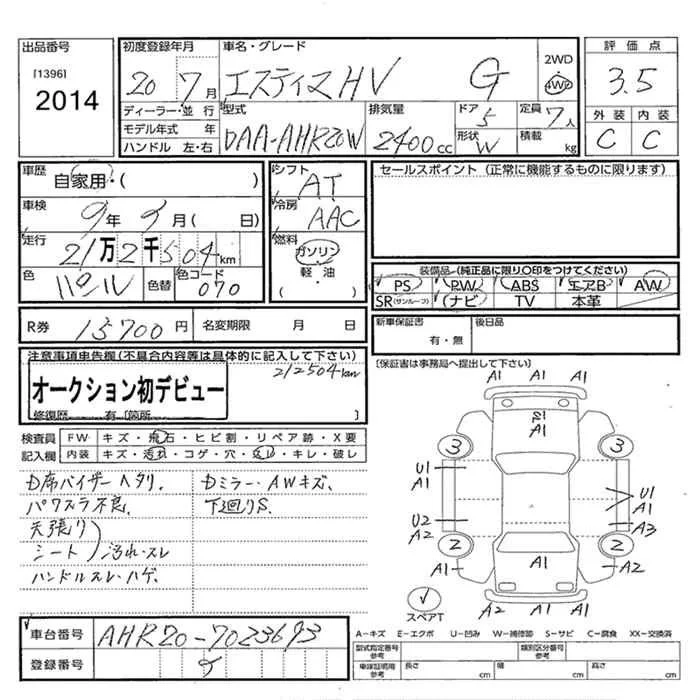 出品番号
[1396]
2014
初度登録年月
20 7月
車名・グレード
エスティマHV G
2WD
4WD
評価点
3.5
外装 内装
C C
ディーラー・並行
モデル年式 年
ハンドル 左・右
型式
DAA-AHR20W
排気量
2400cc
ドア 5
形状 W
定員 7人
積載 kg
車歴 自家用・( )
車検 9年 5月( 日)
走行 21万2千504km
色 パール 色替 色コード 070
シフト AT
冷房 AAC
燃料 ガソリン・軽・油・( )
セールスポイント (正常に機能するものに限ります)
装備品 (純正品に限り○印をつけてください)
PS PW ABS エアB AW
SR(サンルーフ) ナビ TV 本革
R券 15700円 名変期限 月 日
新車保証書 有・無 後日品
[保証書は事務局へ提出して下さい]
注意事項申告欄(不具合内容等は具体的に記入して下さい)
212504km
オークション初デビュー
修復歴 有 [箇所 ]
検査員 FW キズ・飛石・ヒビ割・リペア跡・X要
記入欄 内装 キズ・汚れ・コゲ・穴・ キレ・破レ
D席バイザーヘタリ.
パワスラ不良.
天張り
シート 汚れ・スレ
ハンドルスレ・ハゲ.
Dミラー・AWキズ.
下廻りS.
A1 A1 A1
S1
A1
3 3
U1
A1
U1
A1
U2
A2
A3
2 2
A1 A1 A2
スペアT
A2 A1 A2
A-キズ E-エクボ U-凹み W-補修跡 S-サビ C-腐食 XX-交換済
車台番号 AHR20-7023693
登録番号
型式指定番号 参考
類別区分番号 参考
車検証明用 参考
長さ cm 幅 cm 高さ cm